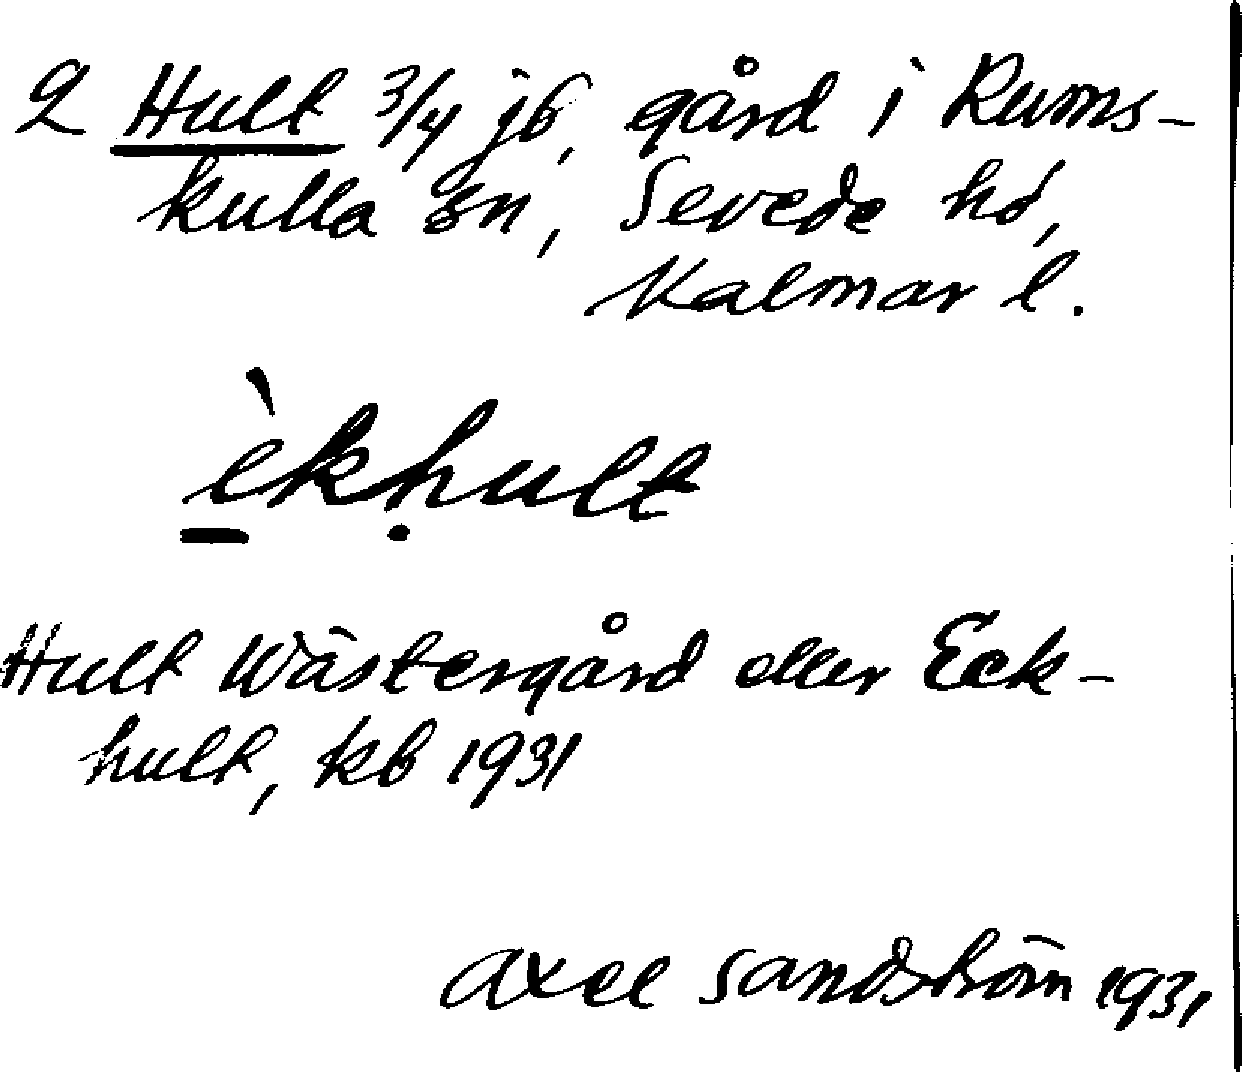 2 Hult 3/4 jb, gård i Rums-
kulla sn, Sevede hd,
Kalmar l.
èkḥult
Hult Wästergård eller Eck-
hult, kb 1931
Axel Sandström 1931